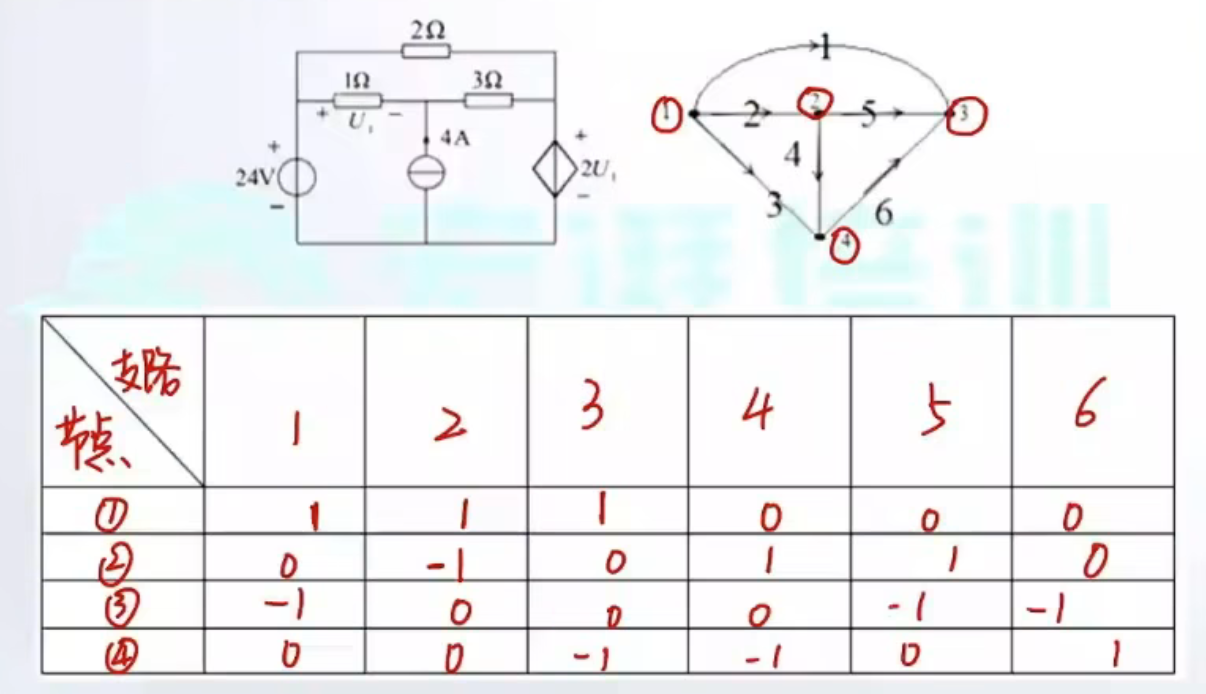 2Ω
1Ω
3Ω
+ U₁ −
4A
+
24V
−
+
2U₁
−
1
① 2 ② 5 ③
4
3
6
④
支路
节点
1 2 3 4 5 6
① 1 1 1 0 0 0
② 0 -1 0 1 1 0
③ -1 0 0 0 -1 -1
④ 0 0 -1 -1 0 1